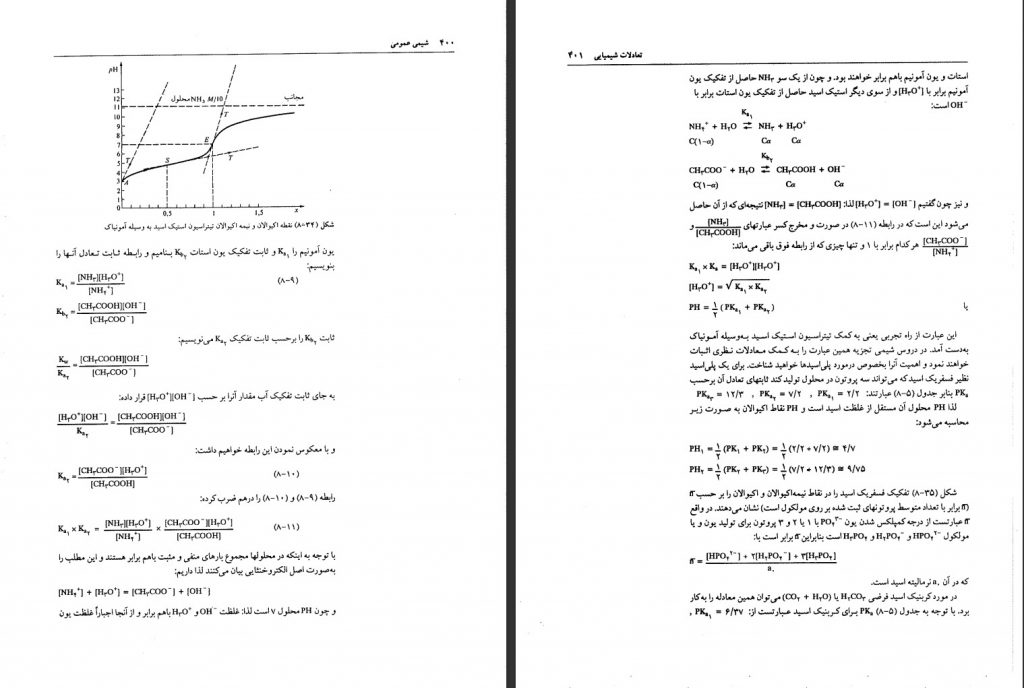 ۴۰۰ شیمی عمومی
pH
13
12
11
10
9
8
7
6
5
4
3
2
1
0
محلول NH₃ M/10
مجانب
T
E
S
T
T
A
0,5
1
1,5
x
شکل (۳۴-۸) نقطه اکیوالان و نیمه اکیوالان تیتراسیون استیک اسید به وسیله آمونیاک
یون آمونیم را Ka₁ و ثابت تفکیک یون استات Kb₂ بنامیم و رابطه ثابت تعادل آنها را
بنویسیم:
Ka₁ = [NH₃][H₃O⁺] / [NH₄⁺] (۸-۹)
Kb₂ = [CH₃COOH][OH⁻] / [CH₃COO⁻]
ثابت Kb₂ را برحسب ثابت تفکیک Ka₂ می‌نویسیم:
Kw / Ka₂ = [CH₃COOH][OH⁻] / [CH₃COO⁻]
به جای ثابت تفکیک آب مقدار آنرا بر حسب [H₃O⁺][OH⁻] قرار داده:
[H₃O⁺][OH⁻] / Ka₂ = [CH₃COOH][OH⁻] / [CH₃COO⁻]
و با معکوس نمودن این رابطه خواهیم داشت:
Ka₂ = [CH₃COO⁻][H₃O⁺] / [CH₃COOH] (۸-۱۰)
رابطه (۸-۹) و (۸-۱۰) را درهم ضرب کرده:
Ka₁ × Ka₂ = [NH₃][H₃O⁺] / [NH₄⁺] × [CH₃COO⁻][H₃O⁺] / [CH₃COOH] (۸-۱۱)
با توجه به اینکه در محلولها مجموع بارهای منفی و مثبت باهم برابر هستند و این مطلب را
به‌صورت اصل الکتروخنثایی بیان می‌کنند لذا داریم:
[NH₄⁺] + [H₃O⁺] = [CH₃COO⁻] + [OH⁻]
و چون PH محلول ۷ است لذا: غلظت OH⁻ و H₃O⁺ باهم برابر و از آنجا اجباراً غلظت یون
تعادلات شیمیایی ۴۰۱
استات و یون آمونیم باهم برابر خواهند بود. و چون از یک سو NH₃ حاصل از تفکیک یون
آمونیم برابر با [H₃O⁺] و از سوی دیگر استیک اسید حاصل از تفکیک یون استات برابر با
OH⁻ است:
Ka₁
NH₄⁺ + H₂O ⇌ NH₃ + H₃O⁺
C(۱-α) Cα Cα
Kb₂
CH₃COO⁻ + H₂O ⇌ CH₃COOH + OH⁻
C(۱-α) Cα Cα
و نیز چون گفتیم [H₃O⁺] = [OH⁻] لذا: [NH₃] = [CH₃COOH] نتیجه‌ای که از آن حاصل
می‌شود این است که در رابطه (۸-۱۱) در صورت و مخرج کسر عبارتهای [NH₃] / [CH₃COOH] و
[CH₃COO⁻] / [NH₄⁺] هرکدام برابر با ۱ و تنها چیزی که از رابطه فوق باقی می‌ماند:
Ka₁ × Ka = [H₃O⁺][H₃O⁺]
[H₃O⁺] = √Ka₁ × Ka₂
یا PH = ۱/۲ (PKa₁ + PKa₂)
این عبارت از راه تجربی یعنی به کمک تیتراسیون استیک اسید به‌وسیله آمونیاک
به‌دست آمد. در دروس شیمی تجزیه همین عبارت را به کمک معادلات نظری اثبات
خواهند نمود و اهمیت آنرا بخصوص درمورد پلی‌اسیدها خواهید شناخت. برای یک پلی‌اسید
نظیر فسفریک اسید که می‌تواند سه پروتون در محلول تولید کند ثابتهای تعادل آن برحسب
PKa بنابر جدول (۵-۸) عبارتند: PKa₁ = ۲/۲ , PKa₂ = ۷/۲ , PKa₃ = ۱۲/۳
لذا PH محلول آن مستقل از غلظت اسید است و PH نقاط اکیوالان به صورت زیر
محاسبه می‌شود:
PH₁ = ۱/۲ (PK₁ + PK₂) = ۱/۲ (۲/۲ + ۷/۲) ≅ ۴/۷
PH₂ = ۱/۲ (PK₂ + PK₃) = ۱/۲ (۷/۲ + ۱۲/۳) ≅ ۹/۷۵
شکل (۳۵-۸) تفکیک فسفریک اسید را در نقاط نیمه‌اکیوالان و اکیوالان را بر حسب n̄
(n̄ برابر با تعداد متوسط پروتونهای ثبت شده بر روی مولکول است) نشان می‌دهند. در واقع
n̄ عبارتست از درجه کمپلکس شدن یون PO₄³⁻ با ۱ یا ۲ و ۳ پروتون برای تولید یون و یا
مولکول HPO₄²⁻ و H₂PO₄⁻ و H₃PO₄ است بنابراین n̄ برابر است با:
n̄ = [HPO₄²⁻] + ۲[H₂PO₄⁻] + ۳[H₃PO₄] / a.
که در آن a. نرمالیته اسید است.
در مورد کربنیک اسید فرضی H₂CO₃ یا (CO₂ + H₂O) می‌توان همین معادله را به‌کار
برد. با توجه به جدول (۵-۸) PKa برای کربنیک اسید عبارتست از: PKa₁ = ۶/۳۷ ,